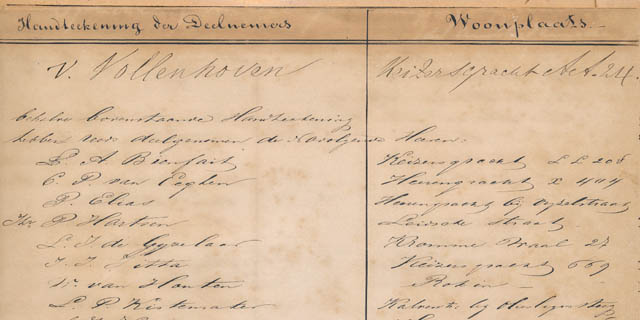 Handteekening der Deelnemers Woonplaats.
v. Vollenhoven Keizersgracht AA. 24.
behalve bovenstaande Handteekening
hebben voor deelgenomen de navolgende Heeren:
L. A. Bienfait Keizersgracht LL 208
C. P. van Eeghen Heerengracht X 404
P. Elias Heerengracht bij Vijzelstraat
P. Hartsen Leidsche Straat
L. J. de Gijzelaar Kromme Waal 27
J. J. Sitta Keizersgracht 669
W. van Houten Rokin
L. P. Kistemaker Kalverstr. bij